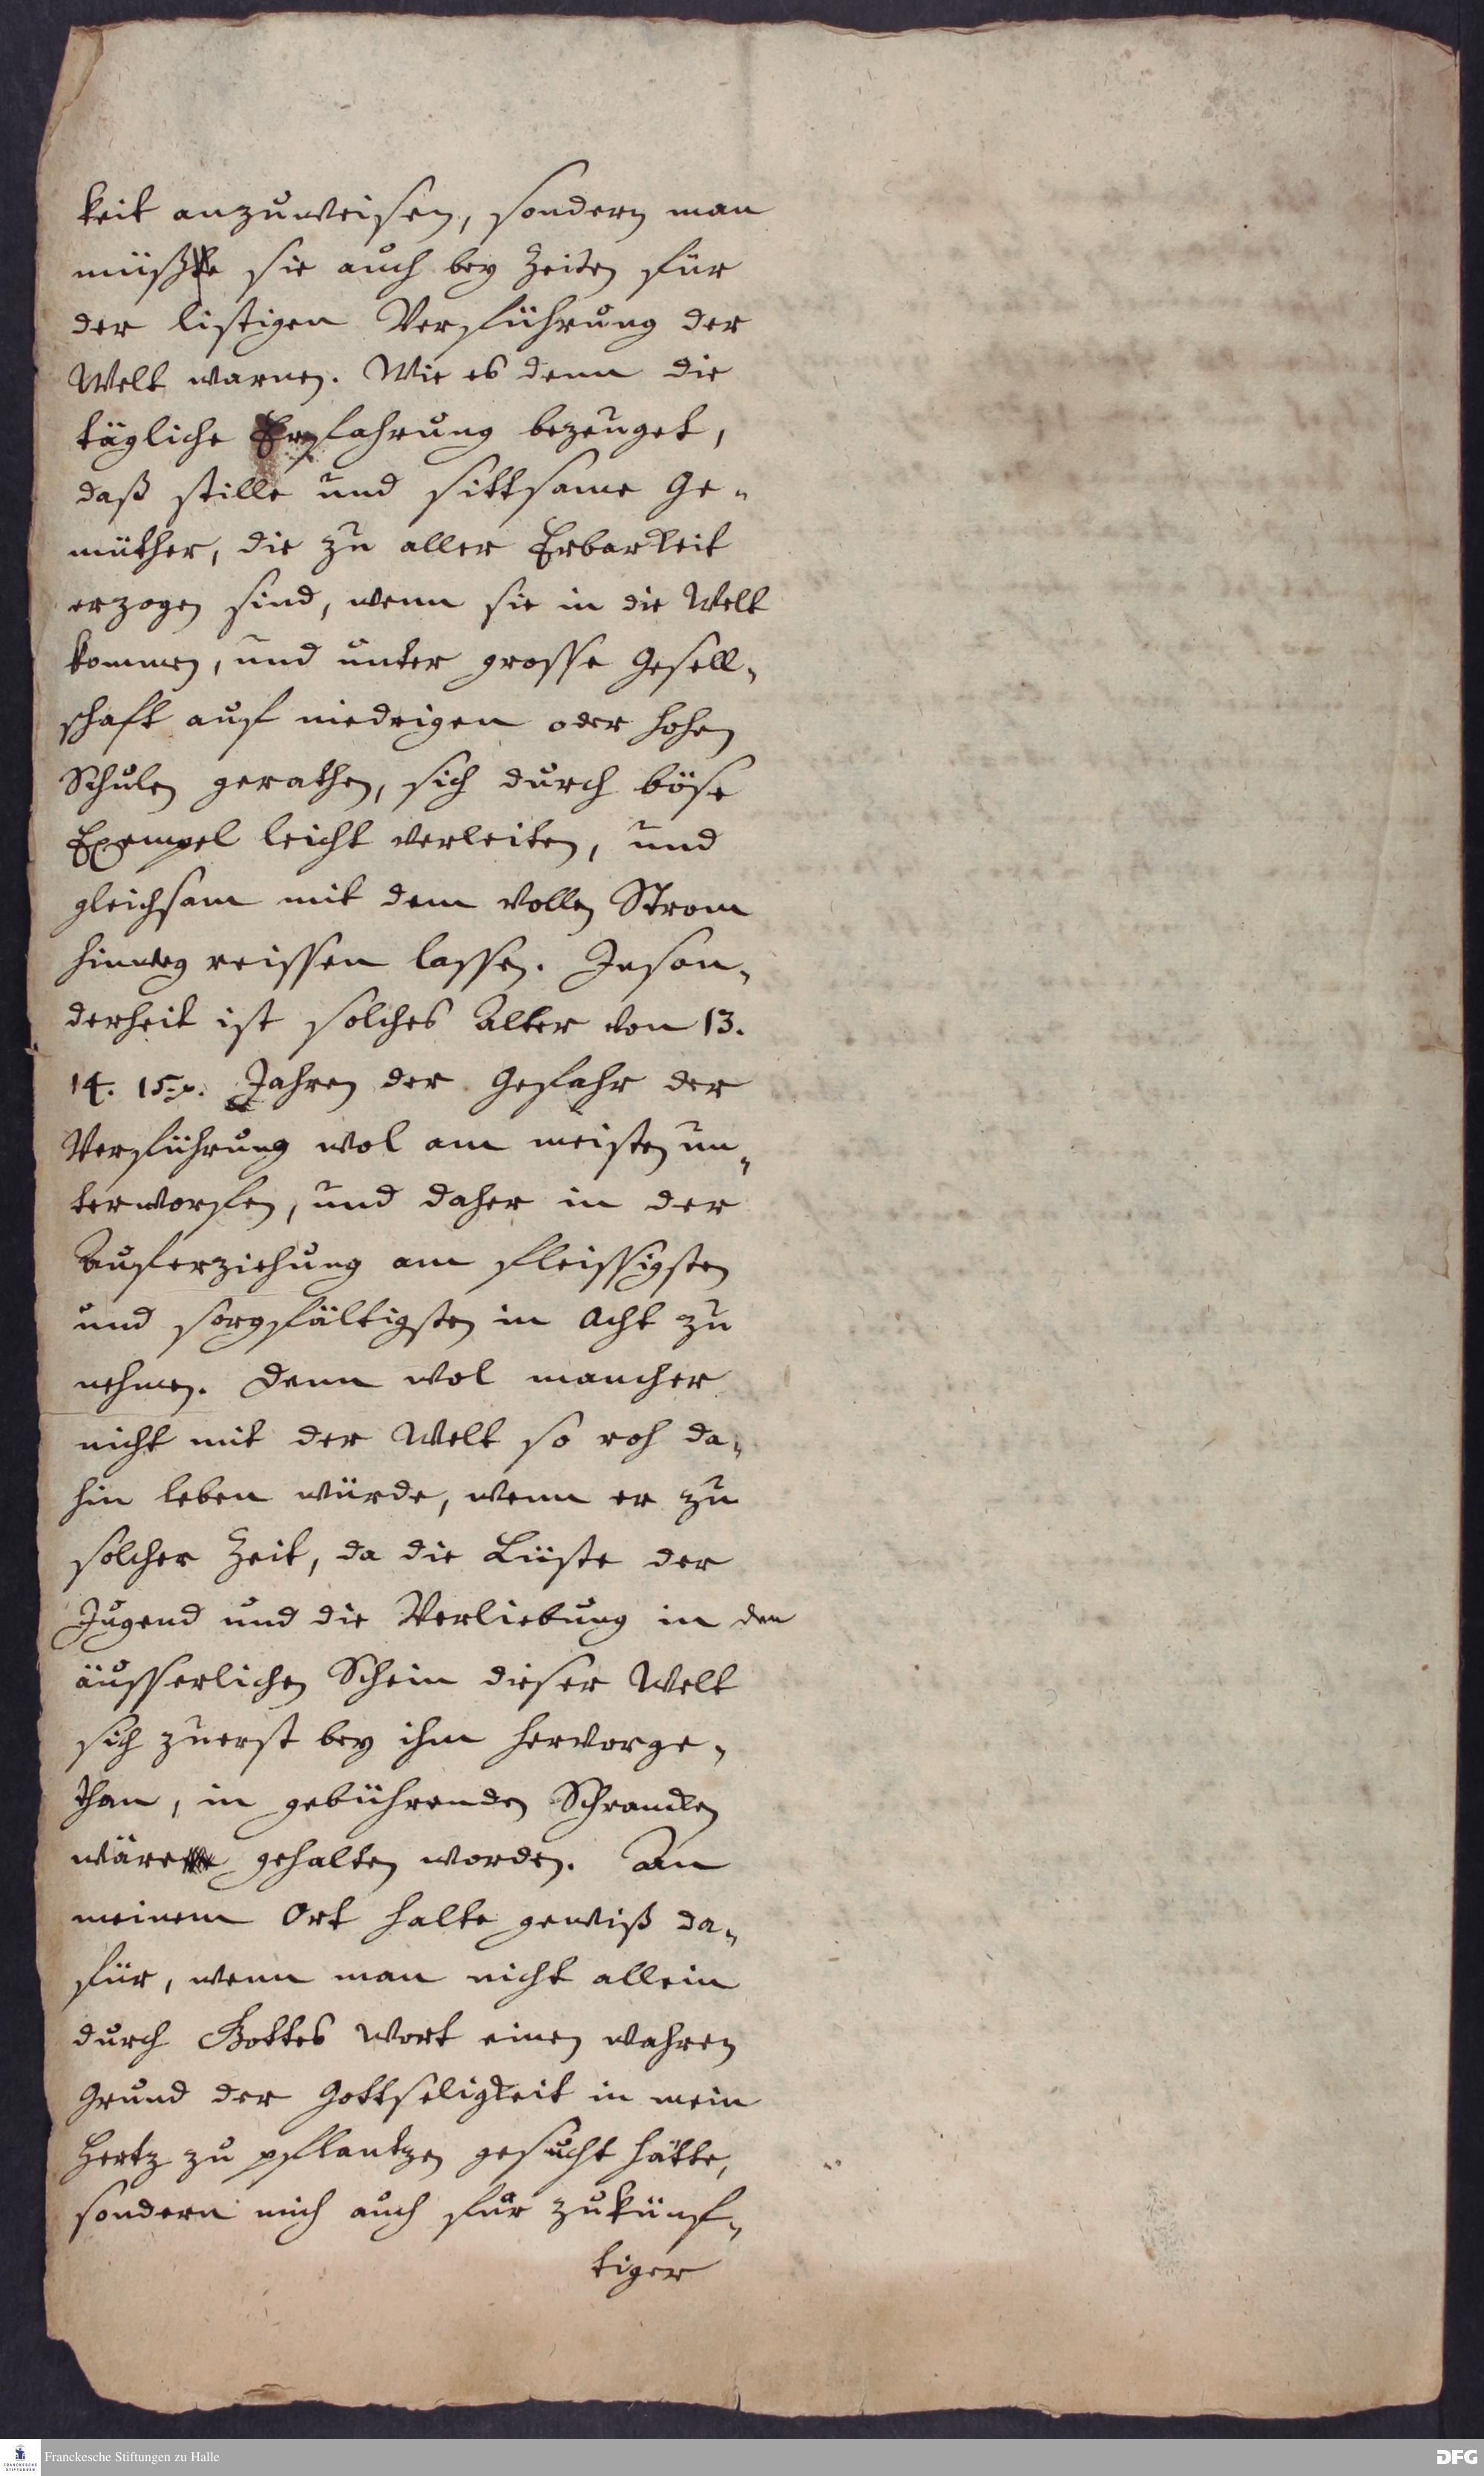 keit anzuweisen, sondern man
müsste sie auch bey Zeiten für
der listigen Verführung der
Welt warnen. Wie es denn die
tägliche Erfahrung bezeuget,
daß stille und sittsame Ge-
müther, die zu aller Erbarkeit
erzogen sind, wenn sie in die Welt
kommen, und unter grosse Gesell-
schaft auf niedrigen oder hohen
Schulen gerathen, sich durch böse
Exempel leicht verleiten, und
gleichsam mit dem vollen Strom
hinweg reissen lassen. Inson-
derheit ist solches Alter von 13.
14. 15. Jahren der Gefahr der
Verführung wol am meisten un-
terworfen, und daher in der
Auferziehung am fleissigsten
und sorgfältigsten in Acht zu
nehmen. Denn wol mancher
nicht mit der Welt so roh da-
hin leben würde, wenn er zu
solcher Zeit, da die Lüste der
Jugend und die Verliebung in den
äusserlichen Schein dieser Welt
sich zuerst bey ihm hervorge-
than, in gebührenden Schrancken
wäre gehalten worden. An
meinem Ort halte gewiß da-
für, wenn man nicht allein
durch Gottes Wort einen wahren
Grund der Gottseligkeit in mein
Hertz zu pflantzen gesucht hätte,
sondern mich auch für zukünf-
tiger
Franckesche Stiftungen zu Halle
DFG